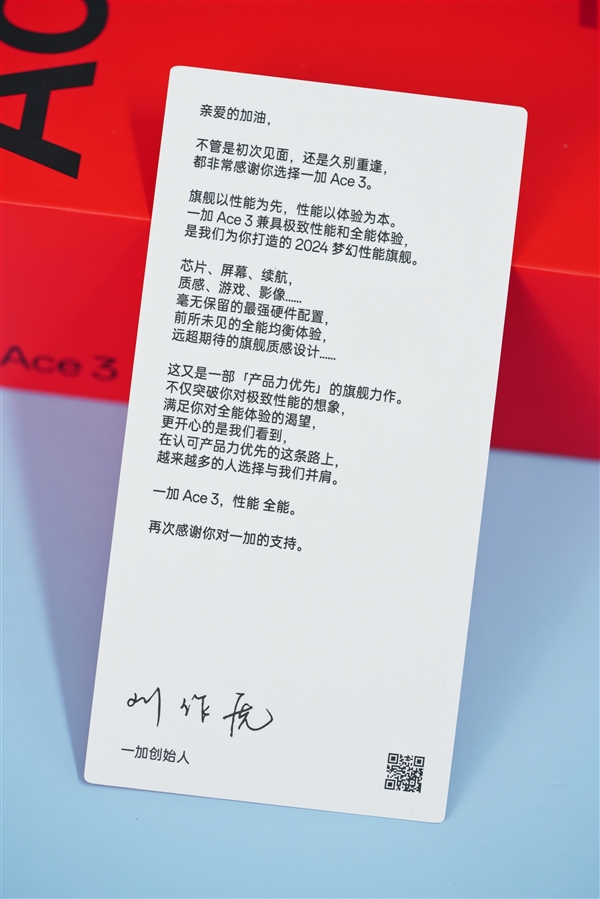 AC
A
Ace 3
亲爱的加油，
不管是初次见面，还是久别重逢，
都非常感谢你选择一加 Ace 3。
旗舰以性能为先，性能以体验为本。
一加 Ace 3 兼具极致性能和全能体验，
是我们为你打造的 2024 梦幻性能旗舰。
芯片、屏幕、续航，
质感、游戏、影像……
毫无保留的最强硬件配置，
前所未见的全能均衡体验，
远超期待的旗舰质感设计……
这又是一部「产品力优先」的旗舰力作。
不仅突破你对极致性能的想象，
满足你对全能体验的渴望，
更开心的是我们看到，
在认可产品力优先的这条路上，
越来越多的人选择与我们并肩。
一加 Ace 3，性能 全能。
再次感谢你对一加的支持。
刘作虎
一加创始人